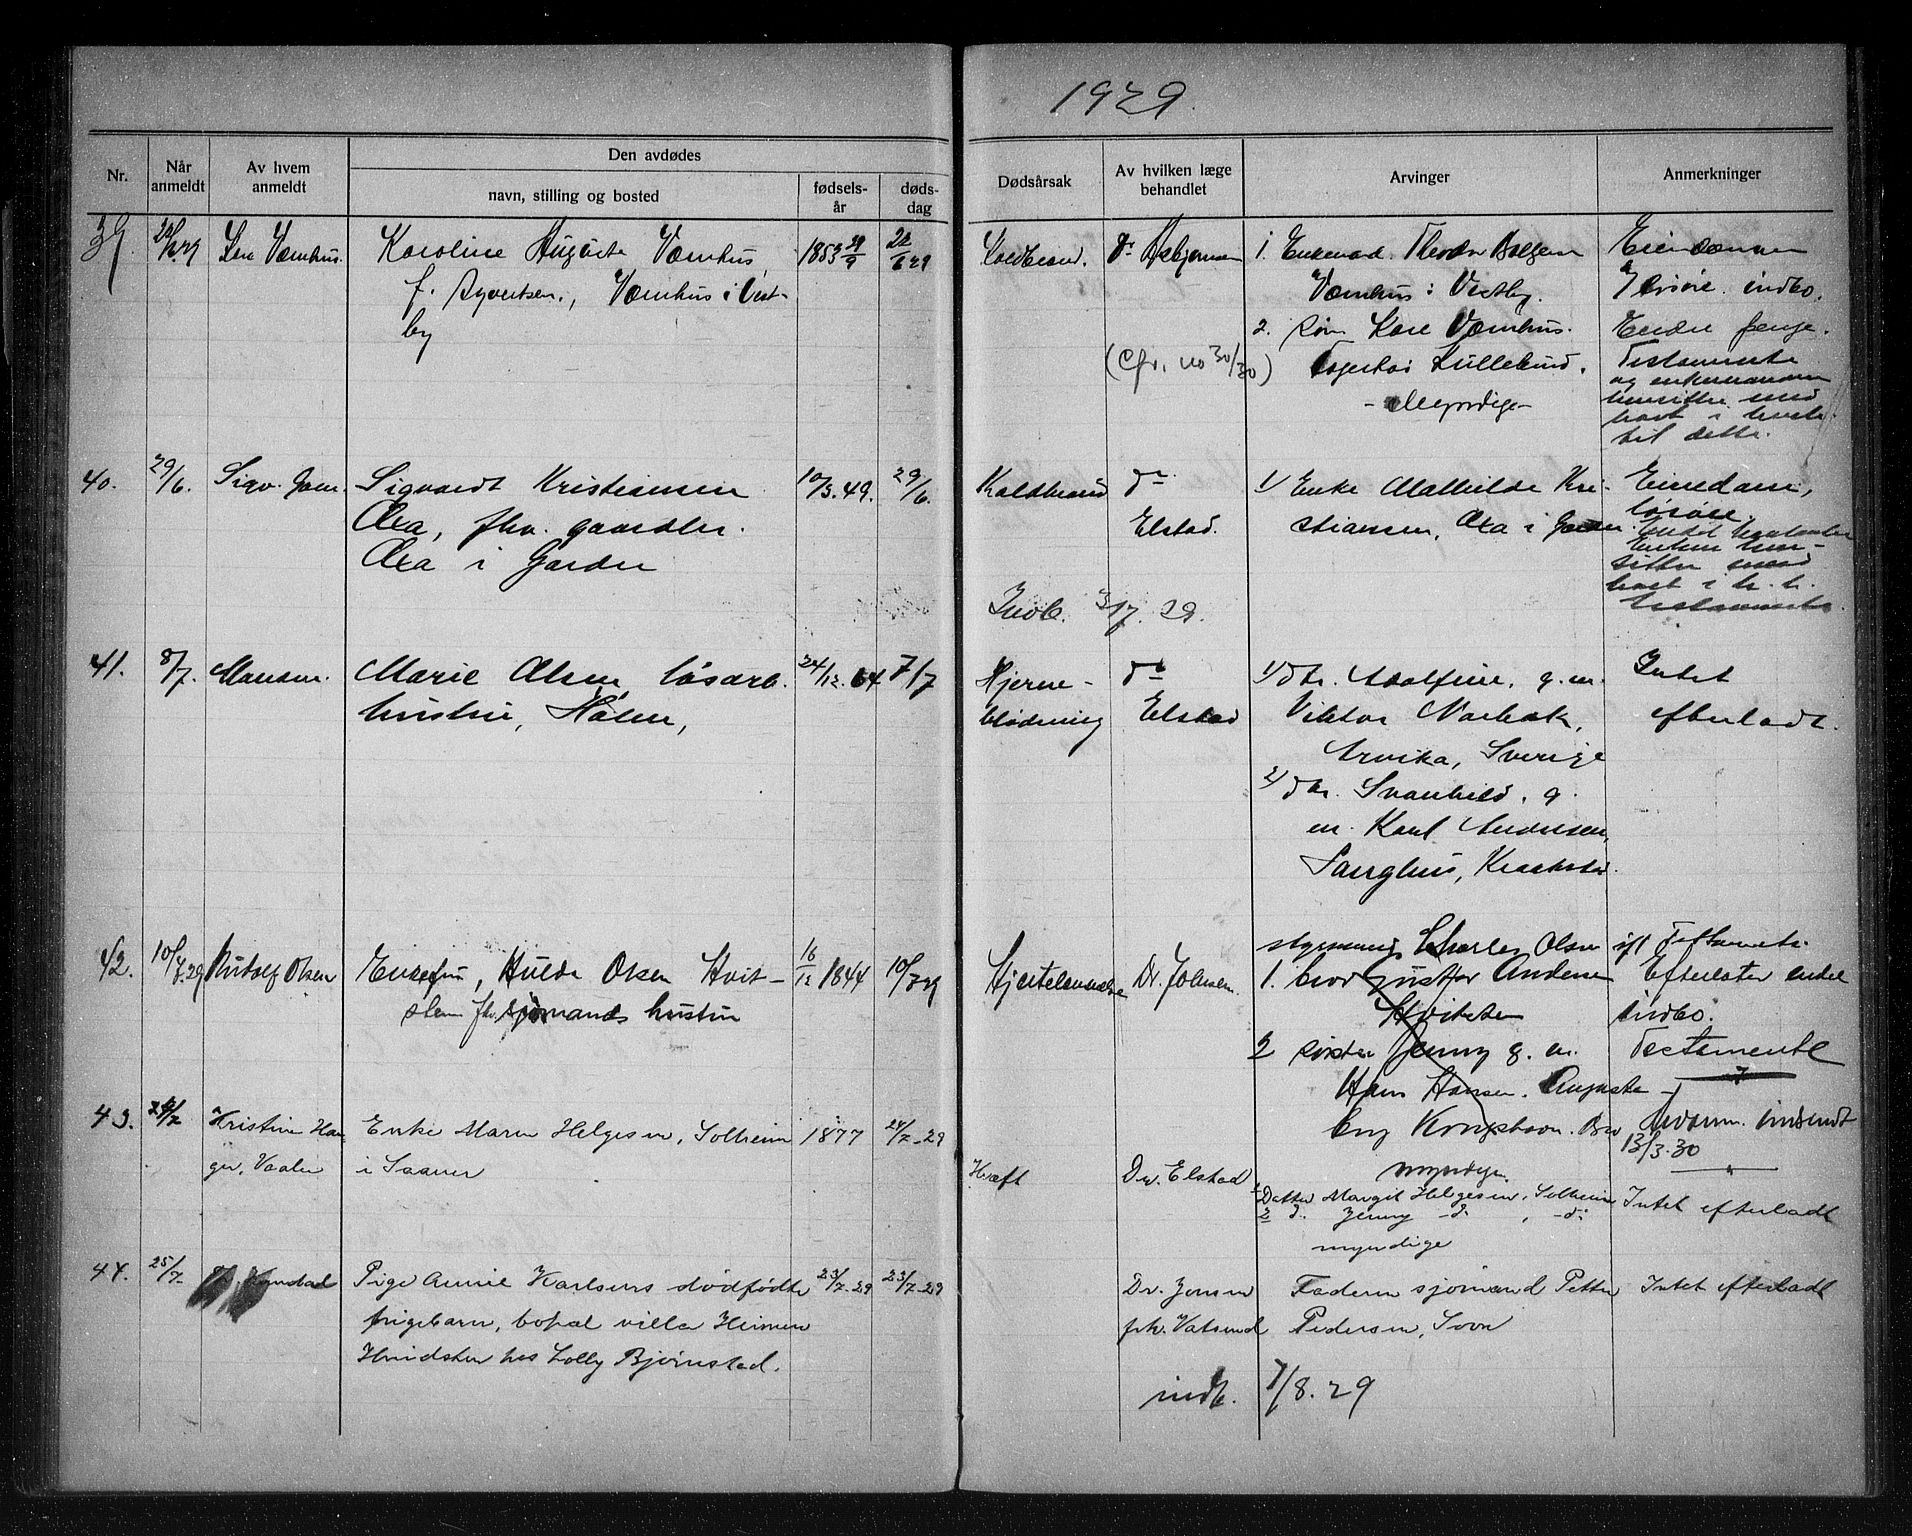 1929.
Nr.
Når anmeldt
Av hvem anmeldt
Den avdødes
navn, stilling og bosted
fødsels-år
døds-dag
Dødsårsak
Av hvilken læge behandlet
Arvinger
Anmerkninger
39.
Karoline Auguste Væmhus
f. Syvertsen, Væmhus i Vest-
by
1853 29/9
22/6 29
Koldbrand.
Dr Asbjørnsen
(Cfr. no 30/30)
1. Enkemad. Theodor
Væmhus i Vestby.
2. Søn Kare Væmhus.
Myndige
Eiendommen
Løsøre. indbo.
Endre penge.
Testamente
og enkemannen
hensitter med
boet i henh.
til dette.
40. 29/6. Sigv. Joer.
Sigvardt Kristiansen
Oxa, fhv. gaardbr.
Oxa i Garder
10/3. 49. 29/6.
Koldbrand
dr
Elstad.
1) Enke Mathilde Kri-
stiansen, Oxa i Garder.
Eiendom,
løsøre.
Enken hen-
sitter med
boet i h. t.
testamente.
Indb. 3/7. 29.
41. 8/7. Mansen.
Marie Olsen, løsarb.
hustru, Hølen,
24/12. 64 7/7
Hjerne-
blødning
dr
Elstad
1) dtr. Adolfine, g.m.
Viktor Norbak,
Arvika, Sverige
2) dtr. Svanhild, g.
m. Karl Andresen,
Langhus, Kraakstad.
Intet
efterladt.
42. 10/7.29 Rudolf Olsen
Enkefru, Hulda Olsen Hvit-
sten fhv. sjømands hustru
16/12 1844 10/7 29
Hjertelammelse
Dr. Johnsen.
stysønn Charles Olsen
1. bror Gustav Anderse
Hvitsten
2 søster Jenny g. m.
Hans Hansen. Augusta
Eng Kongshavn. Bro
myndige.
ifl Testamente.
Efterlater endel
indbo.
Testamente
Avann. innsendt
13/3.30
43. 24/7 Kristine Han
ger, Vaaler
Enke Maren Helgesen, Solheim
i Saaner
1877 24/7-29
Kræft
Dr. Elstad
1 Datter Margit Helgesen, Solheim
2 d. Jenny -d- , -d-
myndige
Intet efterladt
44. 25/7.
Pige Annie Karlsens dødfødte
pigebarn, bopæl villa Heimen
Hvidsten hos Lolly Bjørnstad.
23/7-29 23/7-29
Dr. Jensen
frk. Vatsend
Faderen sjømand Petter
Pedersen, Soon
Intet efterladt
indb. 7/8. 29